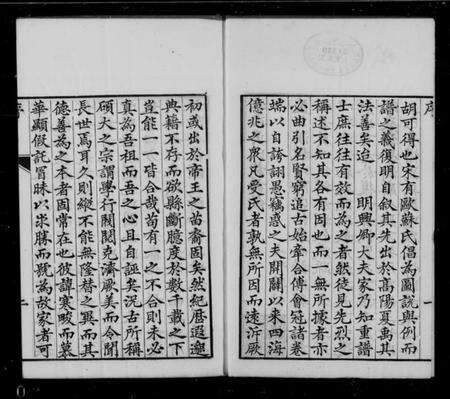 序
胡可得也宋有歐蘇氏倡為圖說與例而
譜之義復明自叙其先出於高陽夏禹其
法善矣迨 明興卿大夫家乃知重譜
士庶往往有效而為之者然徒見先烈之
稱述不知其各有因也而一無所據者亦
必曲引名賢窮追古始牽合傅會冠諸卷
端以自誇詡愚竊惑之夫開闢以來四海
億兆之眾凡受氏者孰無所因而遠泝厥
一
初或出於帝王之苗裔固矣然紀歷遐邈
典籍不存而欲縣斷臆度於數千載之下
豈能一一皆合哉苟有一之不合則未必
真為吾祖而吾之心且自誣矣況古所稱
碩大之宗謂學行閥閱克濟厥美而令聞
長世焉耳久則縱不能無隆替之異而其
德善為之本者固常在也彼諱寒畯而慕
華顯假託冒昧以求勝而號為故家者可
序
二